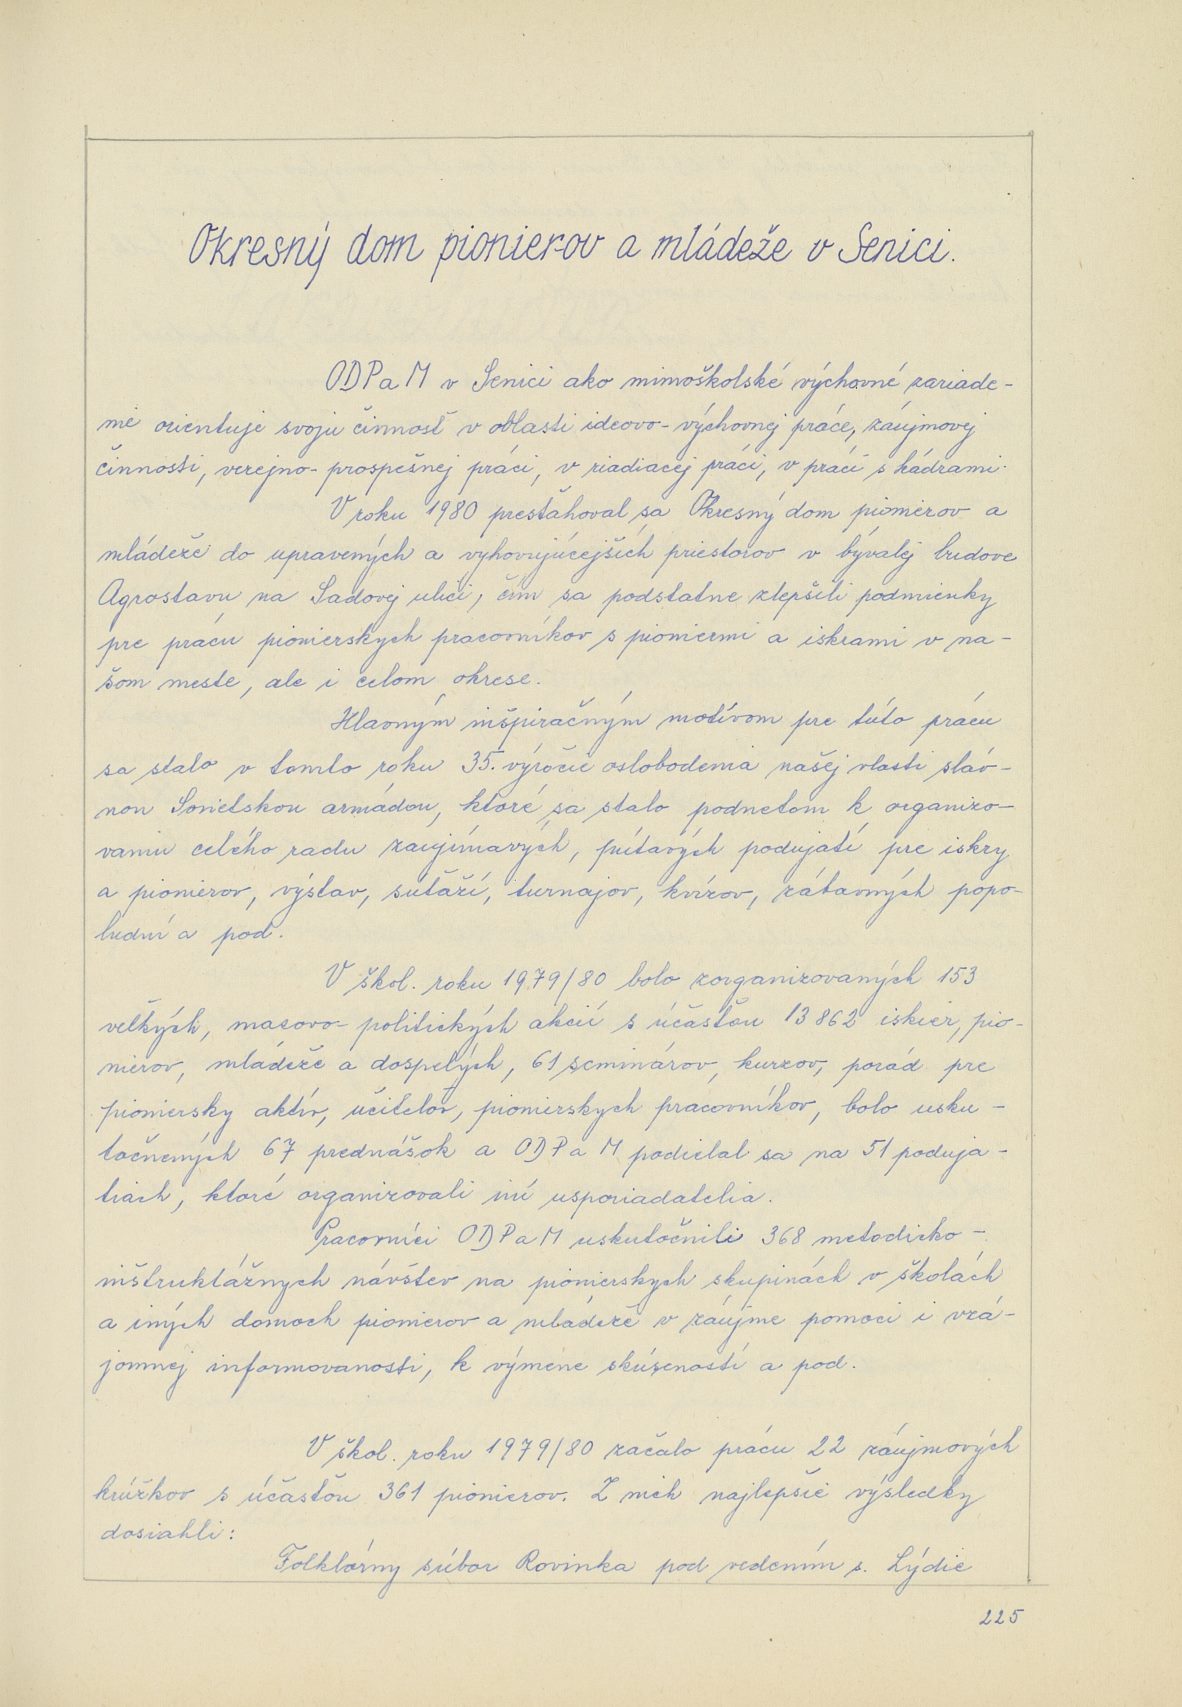 Okresný dom pionierov a mládeže v Senici.
ODPaM v Senici ako mimoškolské výchovné zariade-
nie orientuje svoju činnosť v oblasti ideovo-výchovnej práce, záujmovej
činnosti, verejno-prospešnej práci, v riadiacej práci, v práci s kádrami.
V roku 1980 presťahoval sa Okresný dom pionierov a
mládeže do upravených a vyhovujúcejších priestorov v bývalej budove
Agrostavu na Sadovej ulici, čím sa podstatne zlepšili podmienky
pre prácu pionierskych pracovníkov s pioniermi a iskrami v na-
šom meste, ale i celom okrese.
Hlavným inšpiračným motívom pre túto prácu
sa stalo v tomto roku 35. výročie oslobodenia našej vlasti sláv-
nou Sovietskou armádou, ktoré sa stalo podnetom k organizo-
vaniu celého radu zaujímavých, pútavých podujatí pre iskry
a pionierov, výstav, súťaží, turnajov, kvízov, zábavných popo-
ludní a pod.
V škol. roku 1979/80 bolo zorganizovaných 153
veľkých, masovo-politických akcií s účasťou 13 862 iskier, pio-
nierov, mládeže a dospelých, 61 seminárov, kurzov, porád pre
pioniersky aktív, učiteľov, pionierskych pracovníkov, bolo usku-
točnených 67 prednášok a ODPaM podieľal sa na 51 poduja-
tiach, ktoré organizovali iní usporiadatelia.
Pracovníci ODPaM uskutočnili 368 metodicko-
inštruktážnych návštev na pionierskych skupinách v školách
a iných domoch pionierov a mládeže v záujme pomoci i vzá-
jomnej informovanosti, k výmene skúseností a pod.
V škol. roku 1979/80 začalo prácu 22 záujmových
krúžkov s účasťou 361 pionierov. Z nich najlepšie výsledky
dosiahli:
Folklórny súbor Rovinka pod vedením s. Lýdie
225